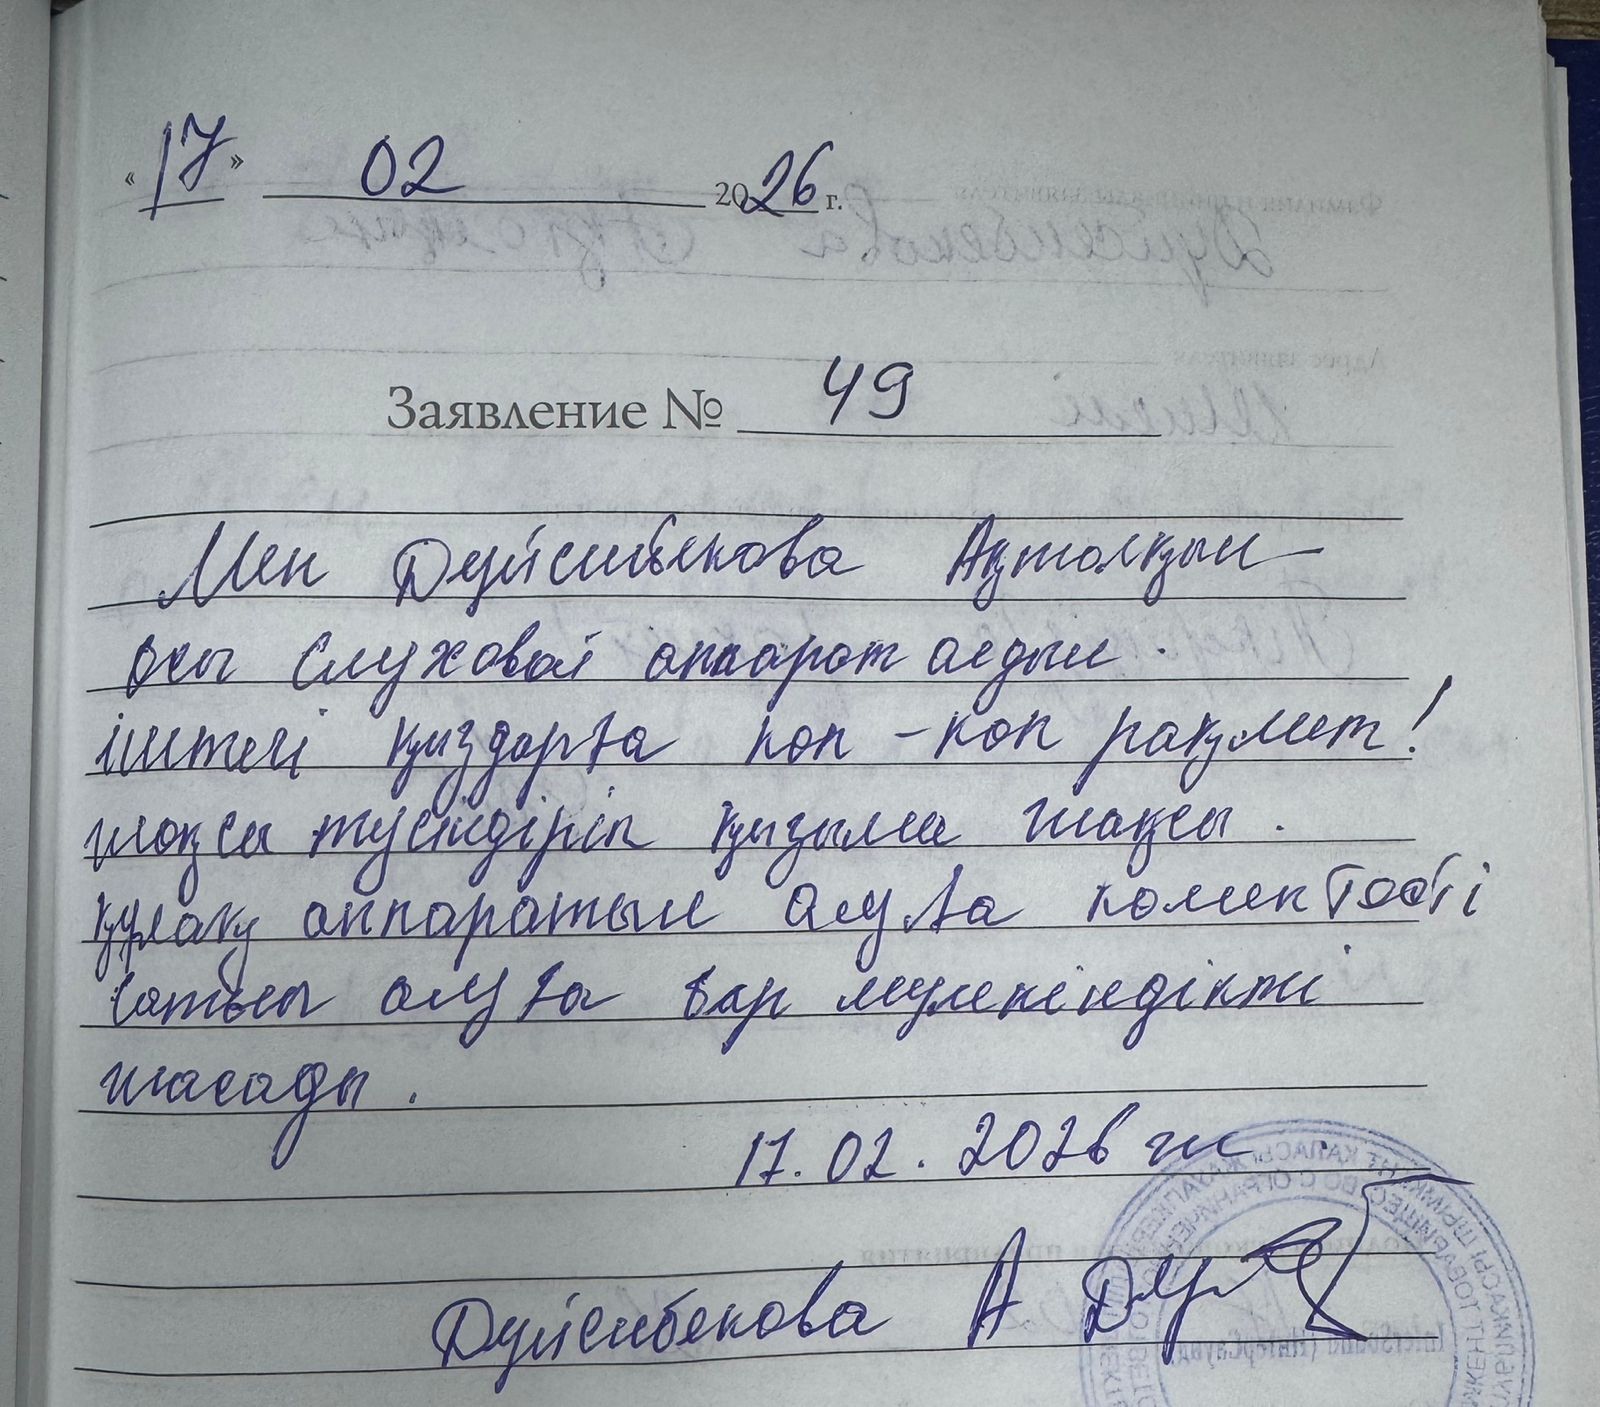 «17» 02 2026 г.
Заявление № 49
Мен Дуйсенбекова Ақтолқын
осы слуховой аппарат алдым.
іштегі қыздарға коп-коп рақмет!
жақсы түсіндіріп қызмет жақсы.
құлақ аппаратын алуға комектесті
сатып алуға бар мүмкіндікті
жасады.
17.02.2026 ж
Дуйсенбекова А